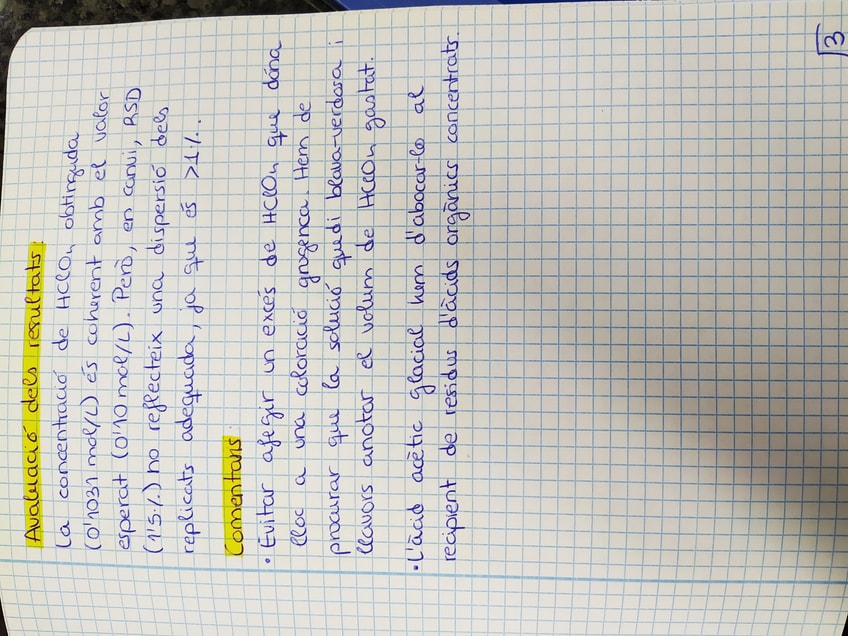 Avaluació dels resultats:
La concentració de HClO₄ obtinguda
(0'1031 mol/L) és coherent amb el valor
esperat (0'10 mol/L). Però, en canvi, RSD
(1'5%) no reflecteix una dispersió dels
replicats adequada, ja que és >1%..
Comentaris:
· Evitar afegir un excés de HClO₄ que dóna
lloc a una coloració grogenca. Hem de
procurar que la solució quedi blava-verdosa i
llavors anotar el volum de HClO₄ gastat.
· L'àcid acètic glacial hem d'abocar-lo al
recipient de residus d'àcids orgànics concentrats.
3